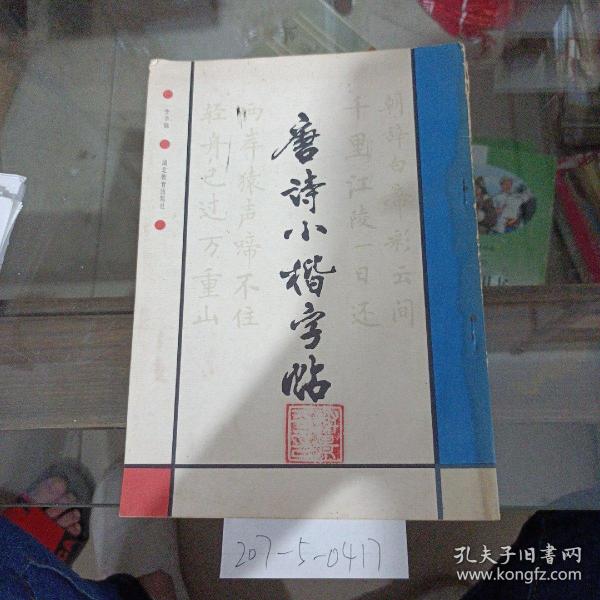 唐诗小楷字帖
湖北教育出版社
朝辞白帝彩云间
千里江陵一日还
两岸猿声啼不住
轻舟已过万重山
207-5-0417
孔夫子旧书网
www.kongfz.com